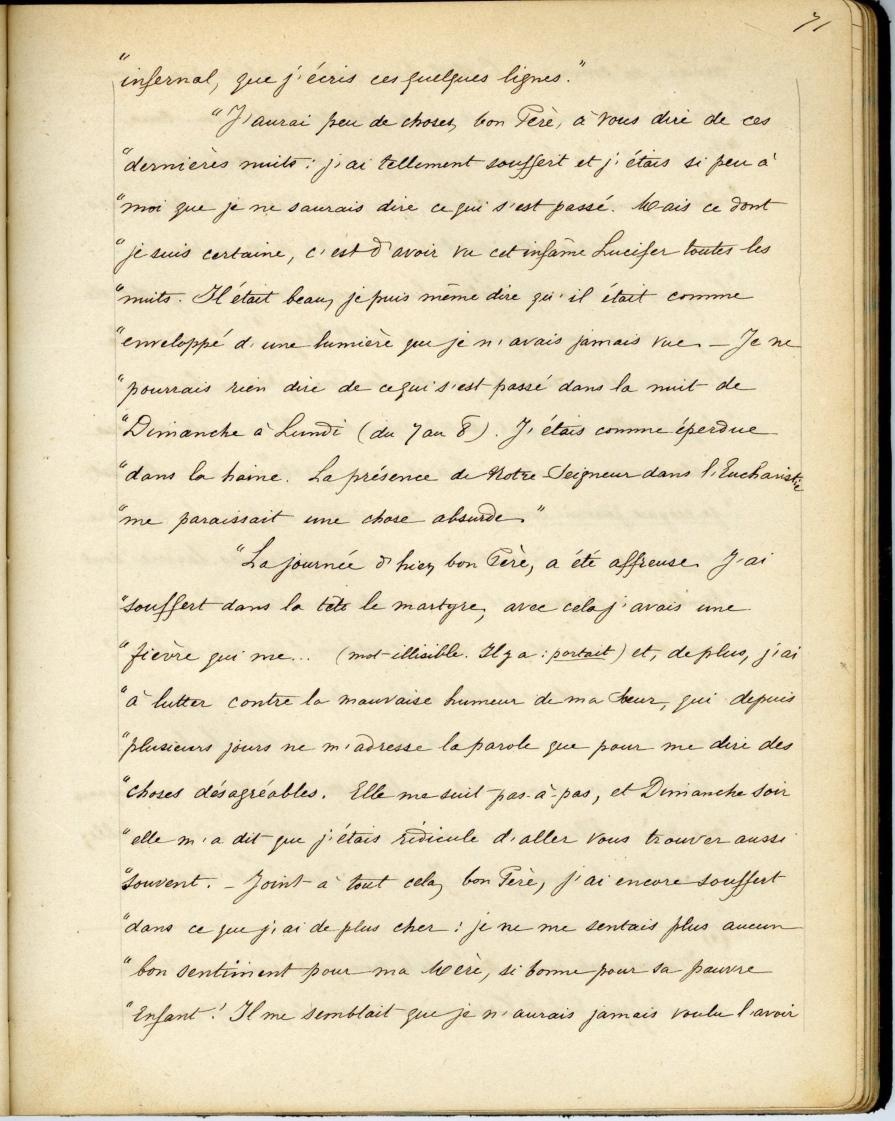 71
"infernal, que j'écris ces quelques lignes."
"J'aurai peu de choses, bon Père, à vous dire de ces
"dernières nuits : j'ai tellement souffert et j'étais si peu à
"moi que je ne saurais dire ce qui s'est passé. Mais ce dont
"je suis certaine, c'est d'avoir vu cet infâme Lucifer toutes les
"nuits. Il était beau, je puis même dire qu'il était comme
"enveloppé d'une lumière que je n'avais jamais vue. — Je ne
"pourrais rien dire de ce qui s'est passé dans la nuit de
"Dimanche à Lundi (du 7 au 8). J'étais comme éperdue
"dans la haine. La présence de Notre-Seigneur dans l'Eucharistie
"me paraissait une chose absurde."
"La journée d'hier, bon Père, a été affreuse. J'ai
"souffert dans la tête le martyre, avec cela j'avais une
"fièvre qui me... (mot illisible. Il y a : portait) et, de plus, j'ai
"à lutter contre la mauvaise humeur de ma Sœur, qui depuis
"plusieurs jours ne m'adresse la parole que pour me dire des
"choses désagréables. Elle me suit pas-à-pas, et Dimanche soir
"elle m'a dit que j'étais ridicule d'aller vous trouver aussi
"souvent. — Joint à tout cela, bon Père, j'ai encore souffert
"dans ce que j'ai de plus cher : je ne me sentais plus aucun
"bon sentiment pour ma Mère, si bonne pour sa pauvre
"Enfant ! Il me semblait que je n'aurais jamais voulu l'avoir